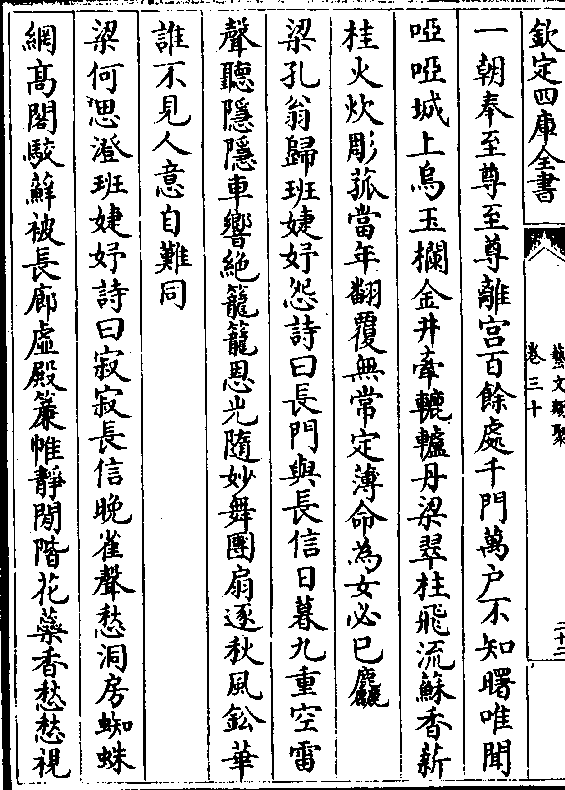 欽定四庫全書
藝文類聚
卷三十
二十二
一朝奉至尊至尊離宮百餘處千門萬户不知曙唯聞
啞啞城上烏玉欄金井牽轆轤丹梁翠柱飛流蘇香薪
桂火炊彫菰當年翻覆無常定薄命為女必已麤
梁孔翁歸班婕妤怨詩曰長門與長信日暮九重空雷
聲聽隱隱車響絶籠籠恩光隨妙舞團扇逐秋風鈆華
誰不見人意自難同
梁何思澄班婕妤詩曰寂寂長信晚雀聲愁洞房蜘蛛
網高閣駮蘚被長廊虛殿簾帷靜閒階花蘂香愁愁視